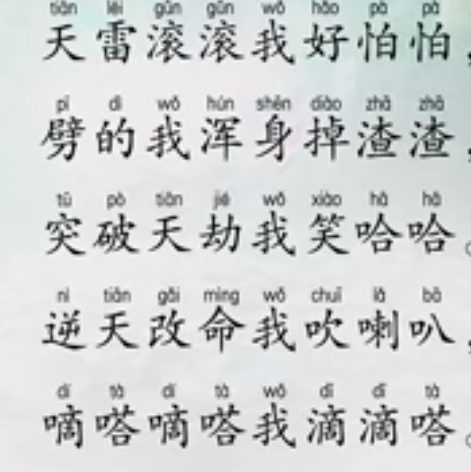 tiān léi gǔn gǔn wǒ hǎo pà pà
天雷滚滚我好怕怕，
pī dì wǒ hún shēn diào zhā zhā
劈的我浑身掉渣渣，
tū pò tiān jié wǒ xiào hā hā
突破天劫我笑哈哈。
nì tiān gǎi mìng wǒ chuī lǎ bā
逆天改命我吹喇叭，
dí tà dí tà wǒ dī dī tà
嘀嗒嘀嗒我滴滴嗒。